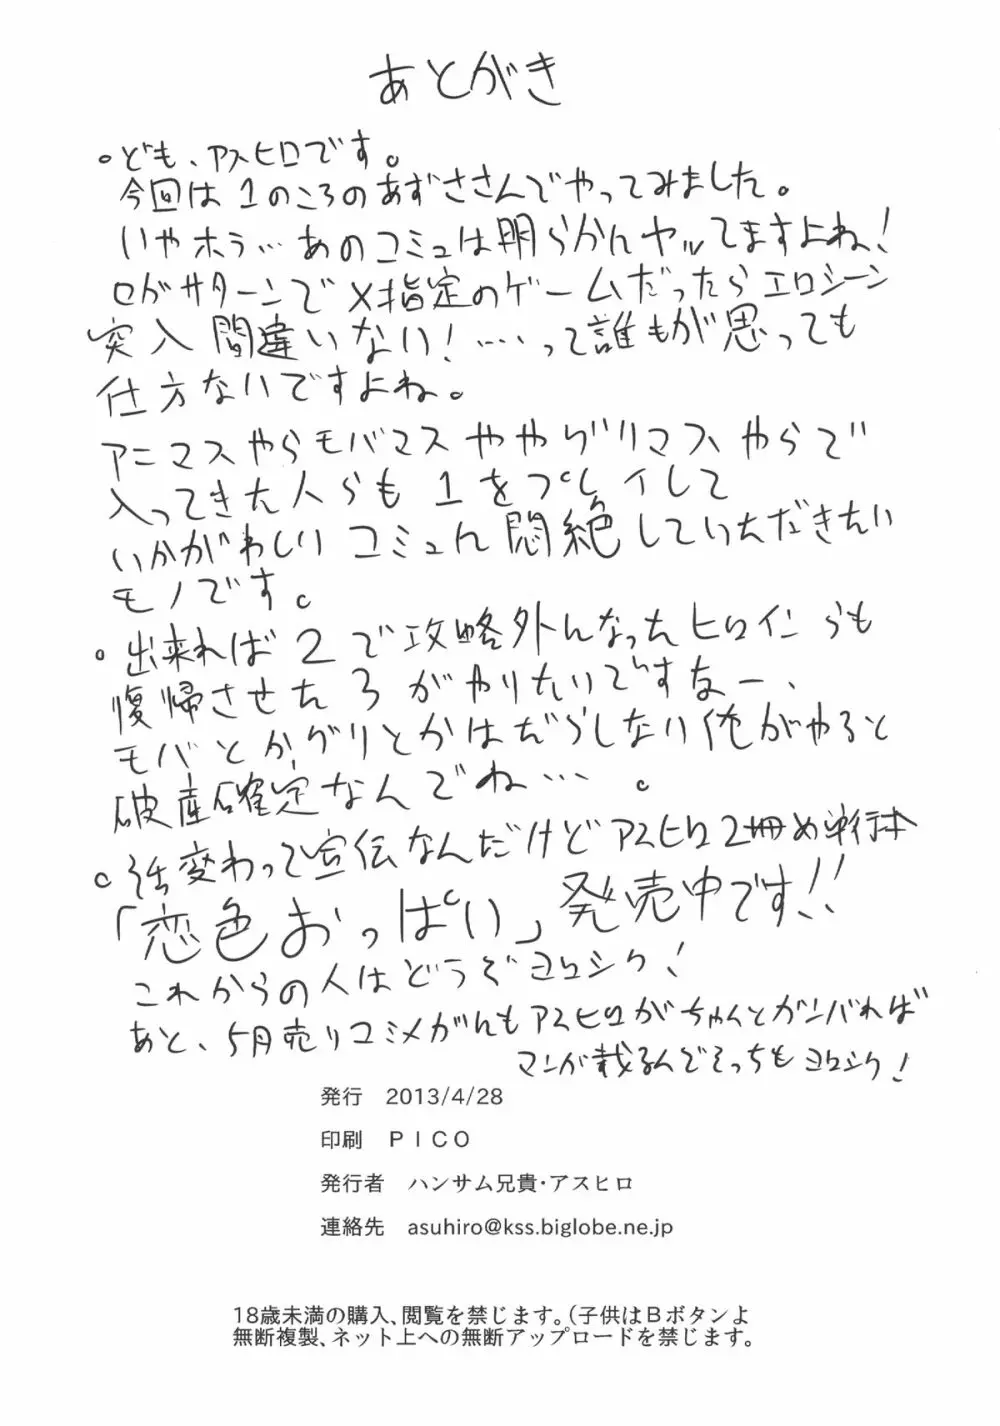 あとがき
。ども、アスヒロです。
今回は1のころのあずささんでやってみました。
いやホラ…あのコミュは明らかにヤッてますよね!
ロがサターンでX指定のゲームだったらエロシーン
突入間違いない!……って誰もが思っても
仕方ないですよね。
アニマスやらモバマスややグリマスやらで
入ってきた人らも1をプレイして
いかがわしいコミュに悶絶していただきたい
モノです。
。出来れば2で攻略外になったヒロインらも
復帰させた3がやりたいですなー、
モバとかグリとかはだらしない俺がやると
破産確定なんでね…。
。話変わって宣伝なんだけどアスヒロ2冊め単行本
「恋色おっぱい」発売中です!!
これからの人はどうぞヨロシク!
あと、5月売りコミメガにもアスヒロがちゃんとガンバれば
マンが載るんでそっちもヨロシク!
発行 2013/4/28
印刷 PICO
発行者 ハンサム兄貴・アスヒロ
連絡先 asuhiro@kss.biglobe.ne.jp
18歳未満の購入、閲覧を禁じます。(子供はBボタンよ
無断複製、ネット上への無断アップロードを禁じます。